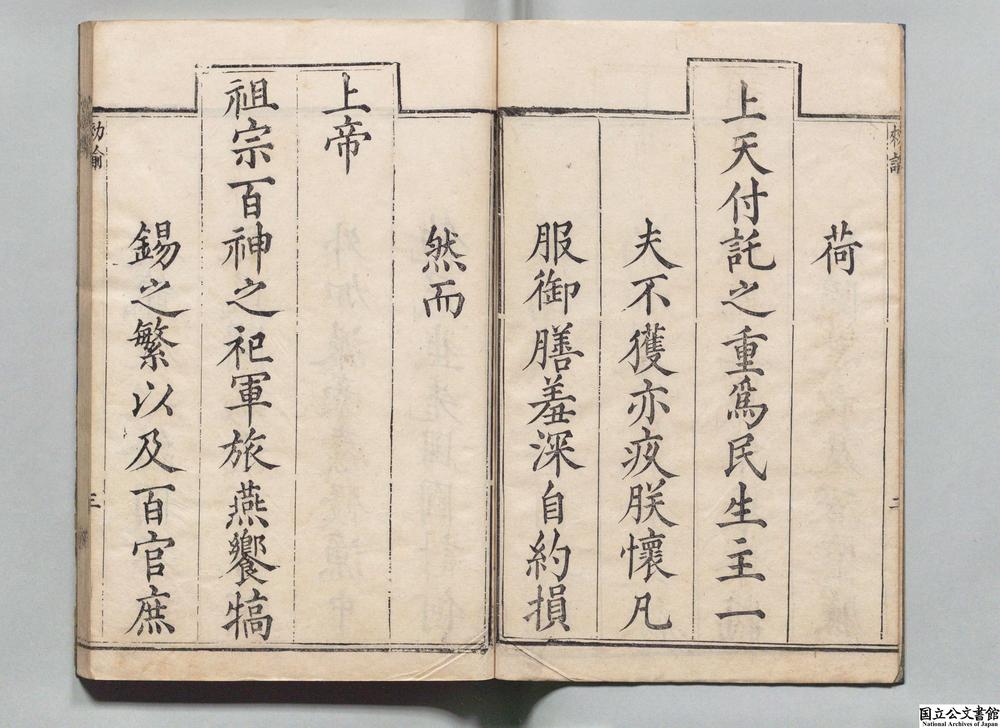 荷
上天付託之重爲民生主一
夫不獲亦疚朕懷凡
服御膳羞深自約損
然而
上帝
祖宗百神之祀軍旅燕饗犒
錫之繁以及百官庶
三
国立公文書館
National Archives of Japan